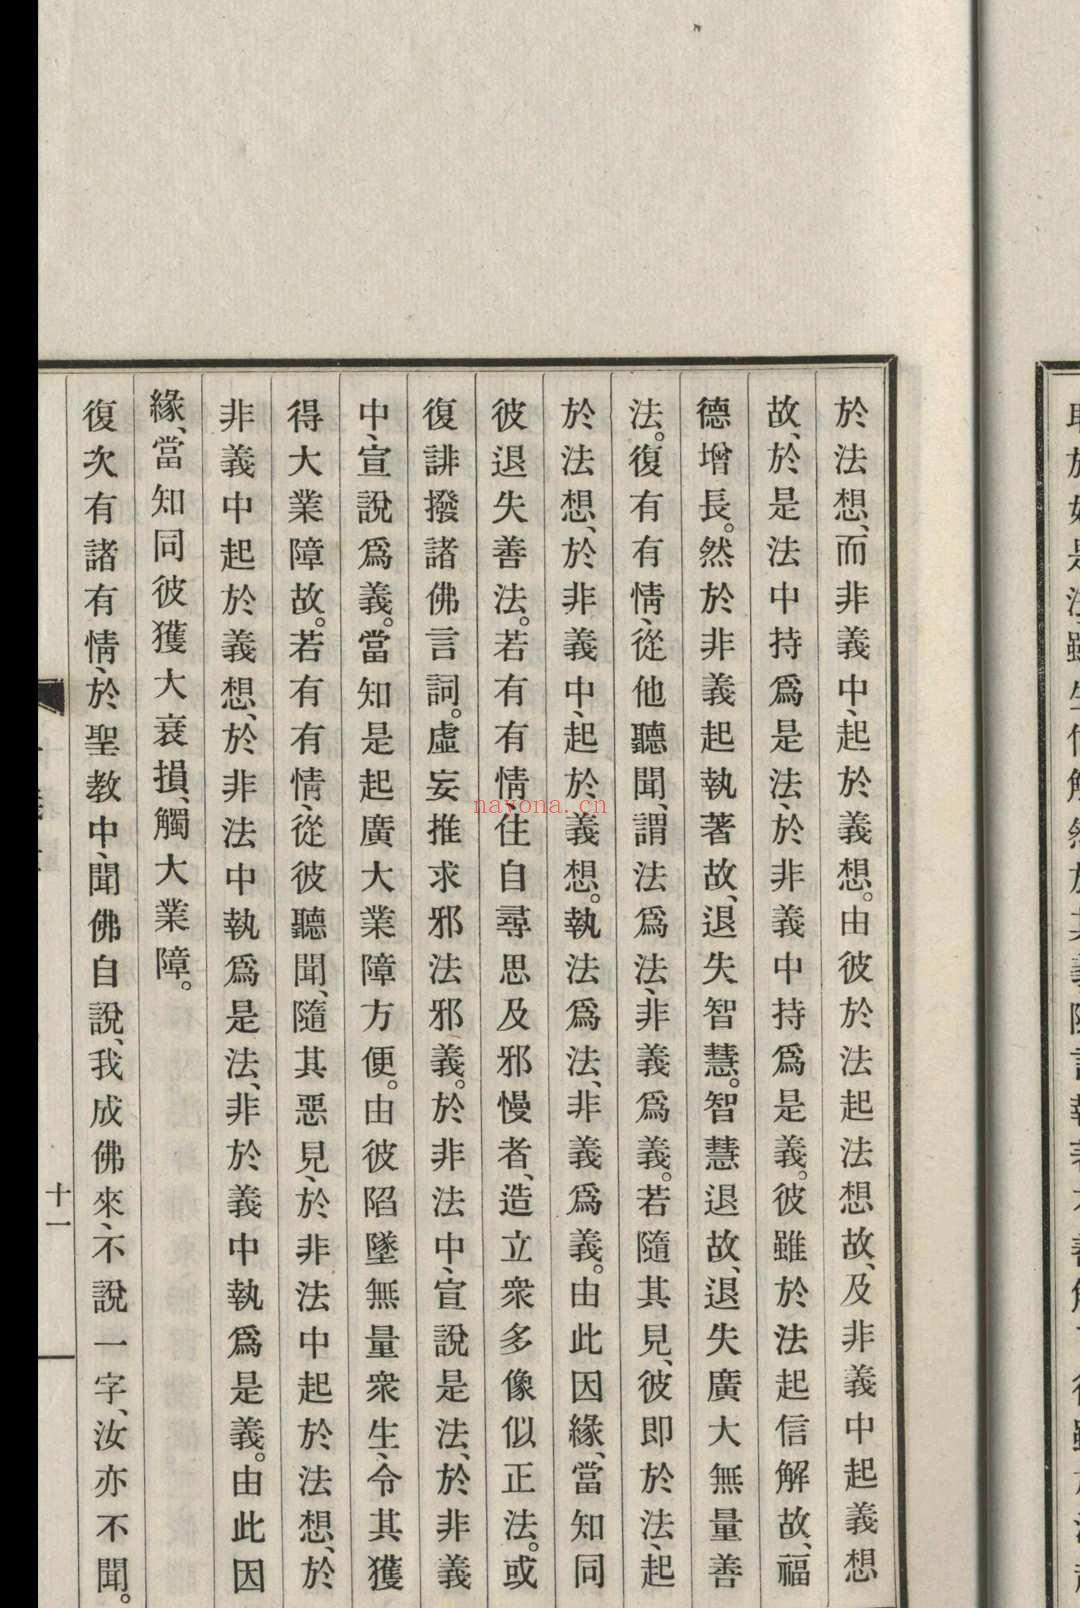 於法想、而非義中、起於義想。由彼於法起法想故、及非義中起義想
故、於是法中持爲是法、於非義中持爲是義。彼雖於法起信解故、福
德增長。然於非義起執著故、退失智慧。智慧退故、退失廣大無量善
法。復有有情、從他聽聞、謂法爲法、非義爲義。若隨其見、彼即於法、起
於法想、於非義中、起於義想。執法爲法、非義爲義。由此因緣、當知同
彼退失善法。若有有情、住自尋思及邪慢者、造立衆多像似正法。或
復誹撥諸佛言詞。虛妄推求邪法邪義。於非法中、宣說是法、於非義
中、宣說爲義。當知是起廣大業障方便。由彼陷墜無量衆生、令其獲
得大業障故。若有有情、從彼聽聞、隨其惡見、於非法中起於法想、於
非義中起於義想、於非法中執爲是法、非於義中執爲是義。由此因
緣、當知同彼獲大衰損、觸大業障。
復次有諸有情、於聖教中、聞佛自說、我成佛來、不說一字、汝亦不聞。
十一
nayona.cn